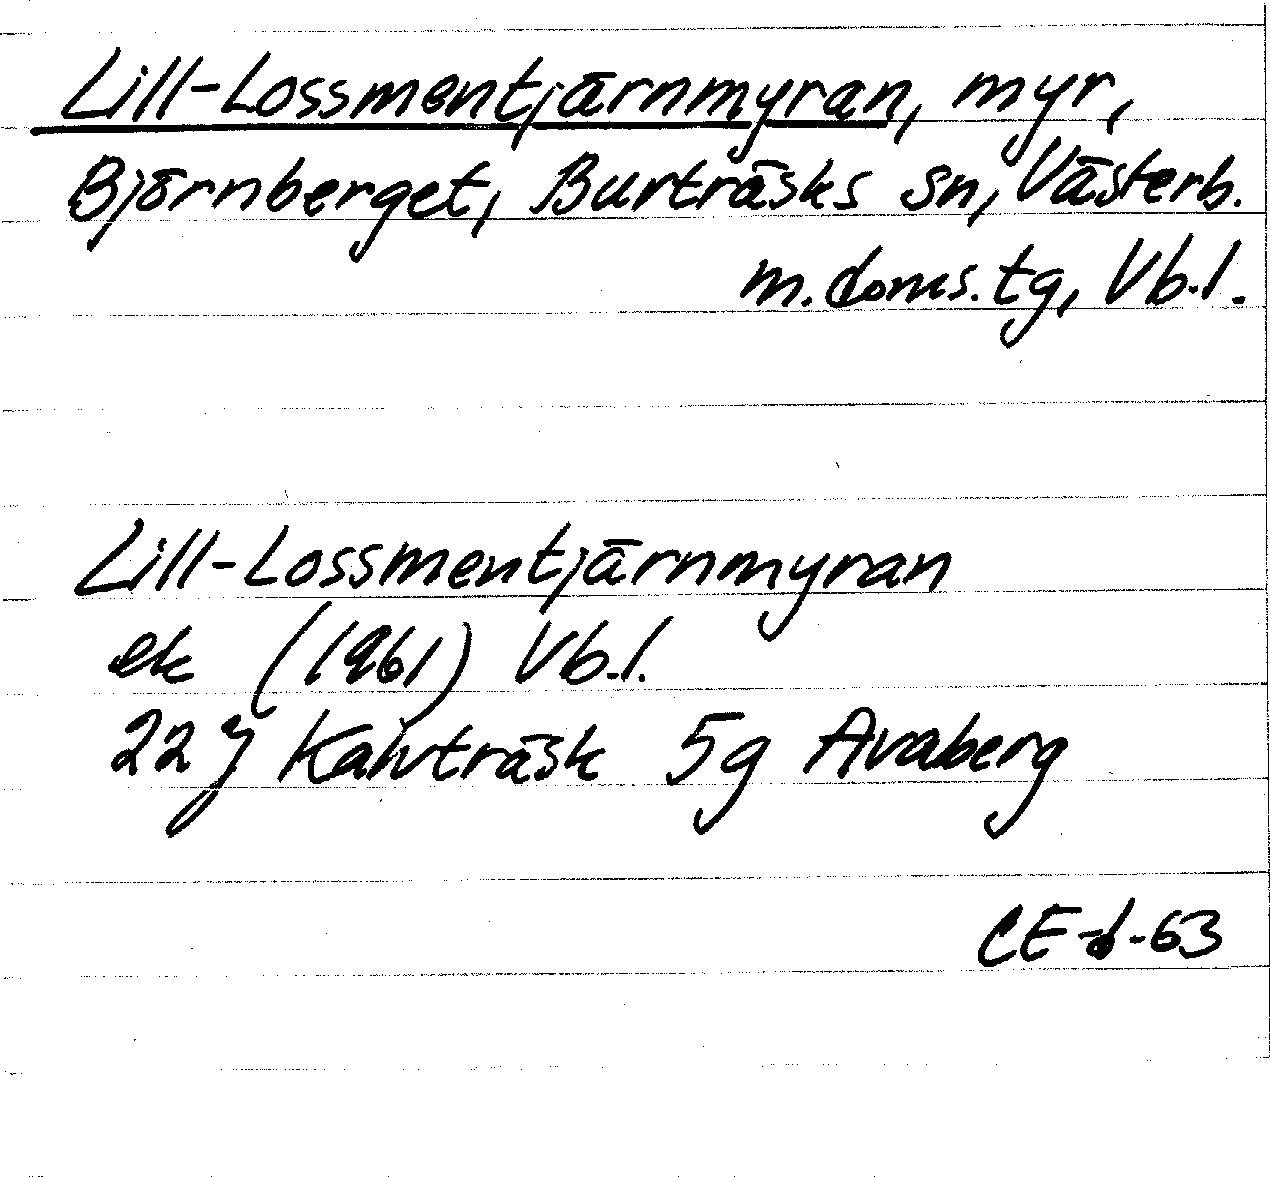 Lill-Lossmentjärnmyran, myr,
Björnberget, Burträsks sn, Västerb.
m. doms. tg, Vb. l.
Lill-Lossmentjärnmyran
ek (1961) Vb. l.
22 J Kalvträsk 5g Avaberg
CE-d-63